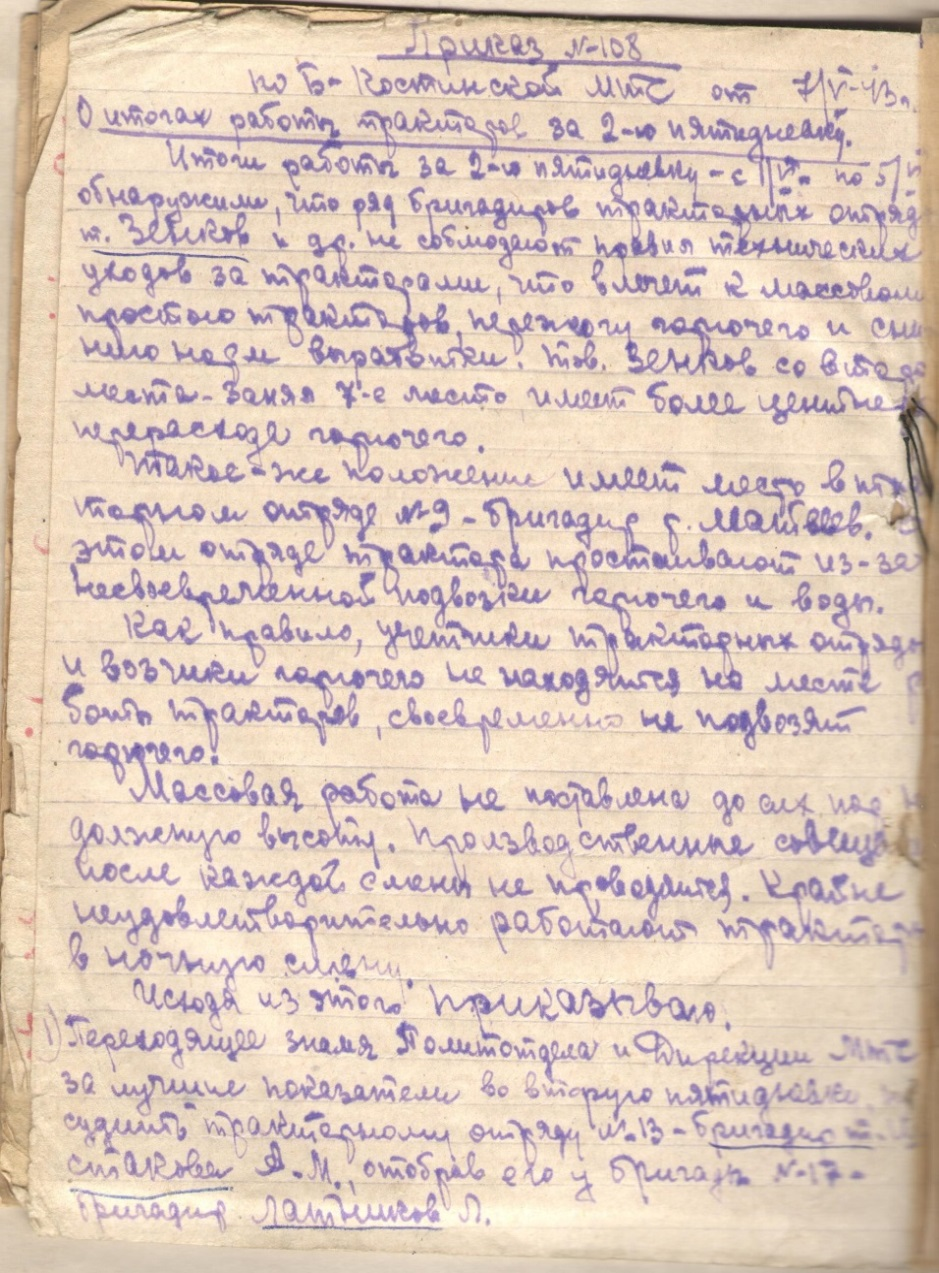 Приказ №-108
по Б-Костинской МТС от 7/V-43 г.
О итогах работы тракторов за 2-ю пятидневку.
Итоги работы за 2-ю пятидневку - с 1/V- по 5/V
обнаружили, что ряд бригадиров тракторных отряд
т. Зенков и др. не соблюдают правил технических
уходов за тракторами, что влечет к массовому
простою тракторов, пережогу горючего и сни
нию норм выработки. Тов. Зенков со
места - занял 7-е место имеет более
перерасхода горючего.
Такое-же положение имеет место в тра
торном отряде №9 - бригадир т. Матвеев. В
этом отряде трактора простаивают из-за
несвоевременной подвозки горючего и воды.
Как правило, учетчики тракторных отрядо
и возчики горючего не находятся на месте р
боты тракторов, своевременно не подвозят
горючего.
Массовая работа не поставлена до сих пор н
должную высоту. Производственные совеща
после каждой смены не проводятся. Крайне
неудовлетворительно работают трактор
в ночную смену.
Исходя из этого приказываю.
1) Переходящее знамя Политотдела и Дирекции МТС
за лучшие показатели во вторую пятидневку,
судить тракторному отряду №-13 - бригадир т.
стакова А.М., отобрав его у бригады №-17-
бригадир Латников Л.